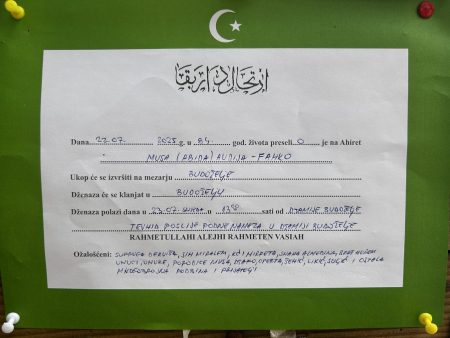 ارتحال دار بقا
Dana 22.07 2025 g. u 84 god. života preseli o je na Ahiret
MUSA (ABIDA) AVDIJA - FAHKO
Ukop će se izvršiti na mezarju BUDOŽELJE
Dženaza će se klanjati u BUDOŽELJU
Dženaza polazi dana u 23.07. SRIJEDA u 1330 sati od DŽAMIJE BUDOŽELJE
TEVHID POSLIJE PODNE NAMAZA U DŽAMIJI BUDOŽELJE
RAHMETULLAHI ALEJHI RAHMETEN VASIAH
Ožalošćeni: SUPRUGA DERVIŠA, SIN MIRALEM, KĆI MIRZETA, SNAHA ALMEDINA, BRAT HUSEIN
UNUCI, UNUKE, PORODICE MUSA,
LIKIĆ, I OSTALA
MNOGOBROJNA RODBINA I PRIJATELJI